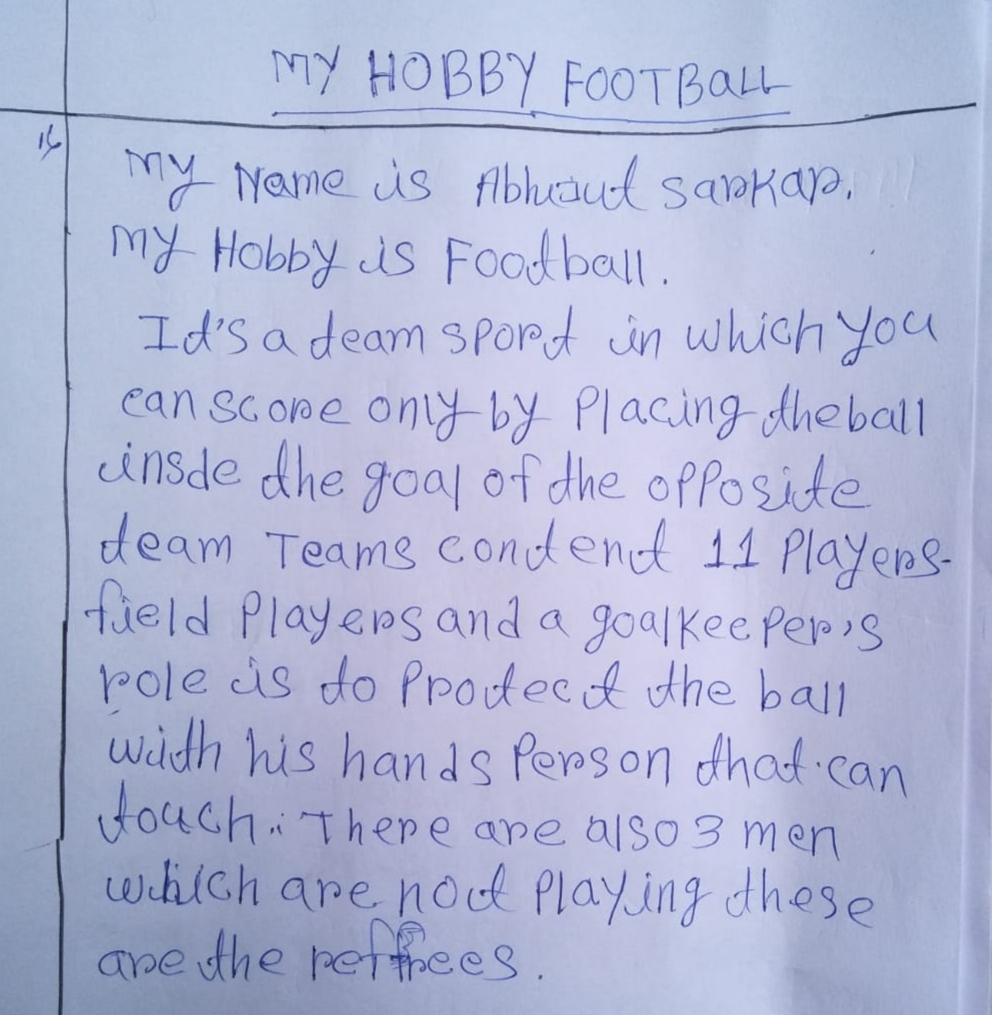 MY HOBBY FOOTBALL
My Name is sarkar.
My Hobby is Football.
It's a team sport in which you
can score only by placing the ball
insde the goal of the opposite
team Teams contend 11 Players-
field Players and a goalkeeper's
role is to Protect the ball
with his hands Person that can
touch. There are also 3 men
which are not Playing these
are the reffrees.